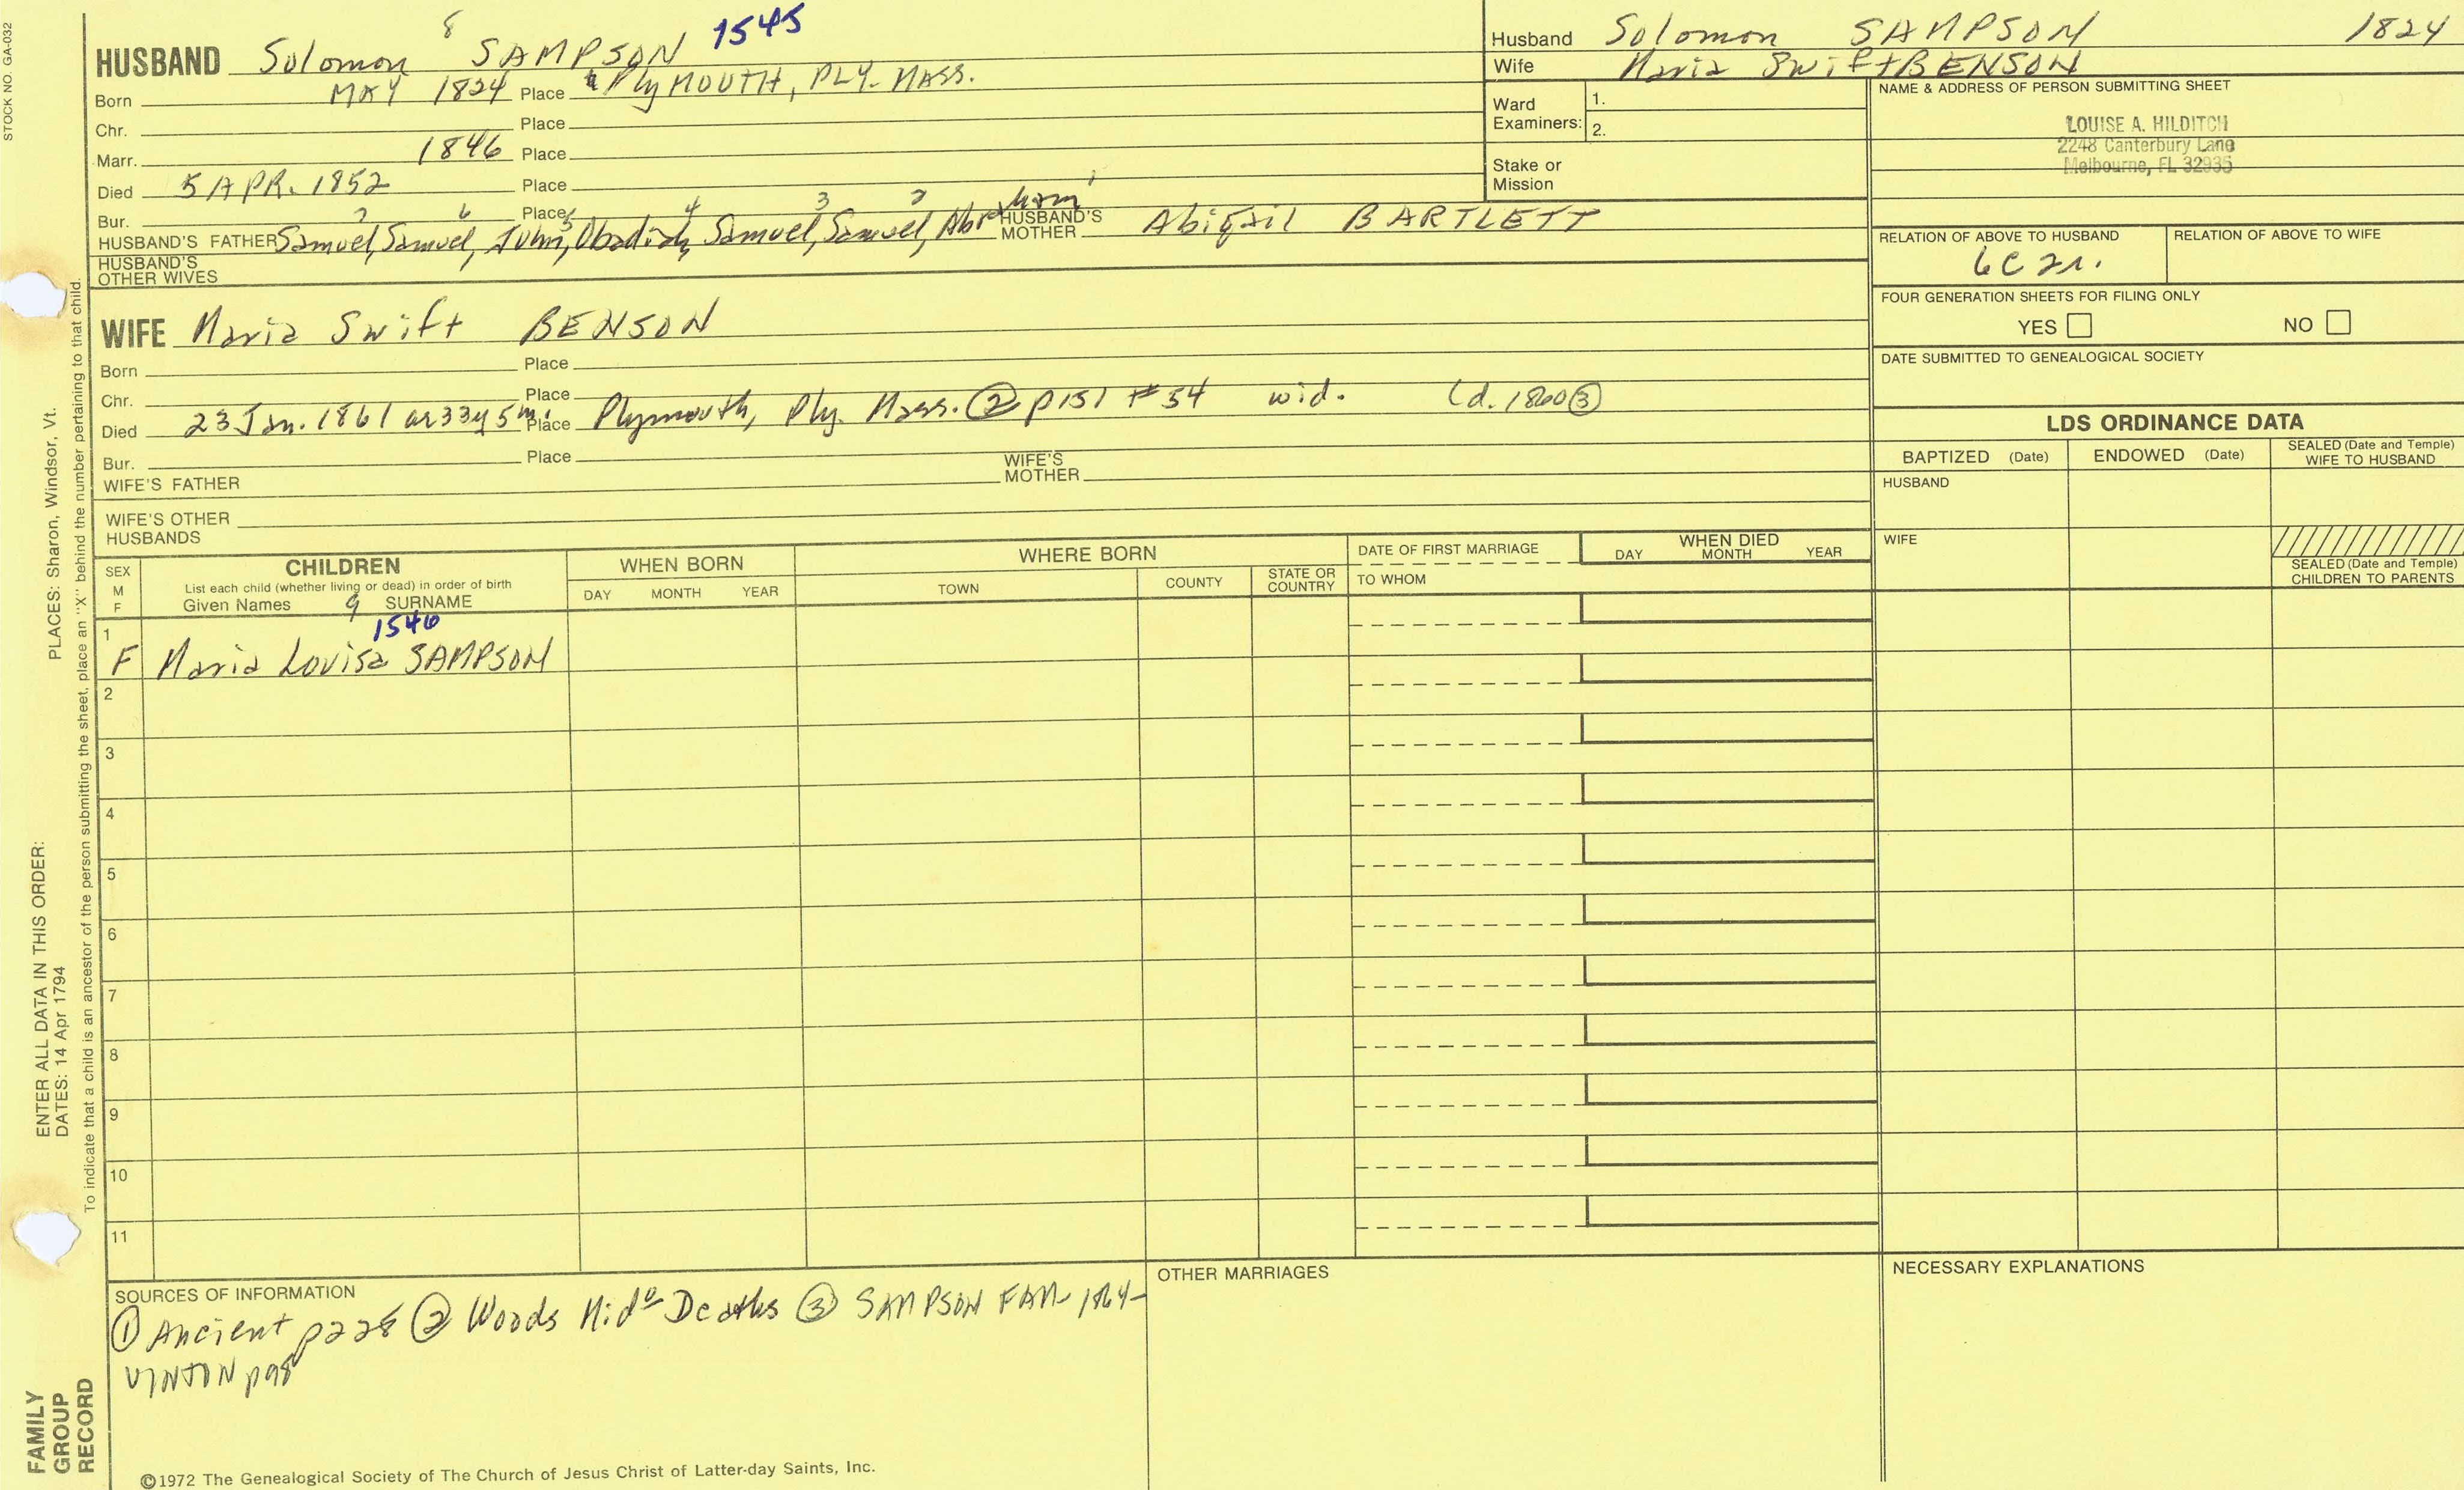 STOCK NO. GA-032
HUSBAND Solomon 8 SAMPSON 1545
Born MAY 1824 Place Plymouth, PLY. MASS.
Chr. Place
Marr. 1846 Place
Died 5 APR. 1852 Place
Bur. Place
HUSBAND'S FATHER Samuel 7, Samuel 6, John 5, Obadiah 4, Samuel 3, Samuel 2, Abraham 1 HUSBAND'S MOTHER Abigail BARTLETT
HUSBAND'S OTHER WIVES
WIFE Maria Swift BENSON
Born Place
Chr. Place
Died 23 Jan. 1861 ae 33y 5m. Place Plymouth, Ply. Mass. ② p151 #54 wid. (d. 1860 ③
Bur. Place
WIFE'S FATHER WIFE'S MOTHER
WIFE'S OTHER HUSBANDS
Husband Solomon SAMPSON 1824
Wife Maria Swift BENSON
Ward Examiners: 1. 2.
Stake or Mission
NAME & ADDRESS OF PERSON SUBMITTING SHEET
LOUISE A. HILDITCH
2248 Canterbury Lane
Melbourne, FL 32935
RELATION OF ABOVE TO HUSBAND RELATION OF ABOVE TO WIFE
6C 2r.
FOUR GENERATION SHEETS FOR FILING ONLY
YES NO
DATE SUBMITTED TO GENEALOGICAL SOCIETY
LDS ORDINANCE DATA
BAPTIZED (Date) ENDOWED (Date) SEALED (Date and Temple) WIFE TO HUSBAND
HUSBAND
WIFE
SEALED (Date and Temple) CHILDREN TO PARENTS
SEX M F
CHILDREN
List each child (whether living or dead) in order of birth
Given Names 9 SURNAME
WHEN BORN
DAY MONTH YEAR
WHERE BORN
TOWN COUNTY STATE OR COUNTRY
DATE OF FIRST MARRIAGE
TO WHOM
WHEN DIED
DAY MONTH YEAR
1546
1 F Maria Lovisa SAMPSON
2
3
4
5
6
7
8
9
10
11
SOURCES OF INFORMATION
① Ancient p228 ② Woods Mido Deaths ③ SAMPSON FAM- 1864-
VINTON p98
OTHER MARRIAGES
NECESSARY EXPLANATIONS
©1972 The Genealogical Society of The Church of Jesus Christ of Latter-day Saints, Inc.
FAMILY
GROUP
RECORD
ENTER ALL DATA IN THIS ORDER:
DATES: 14 Apr 1794
PLACES: Sharon, Windsor, Vt.
To indicate that a child is an ancestor of the person submitting the sheet, place an "X" behind the number pertaining to that child.